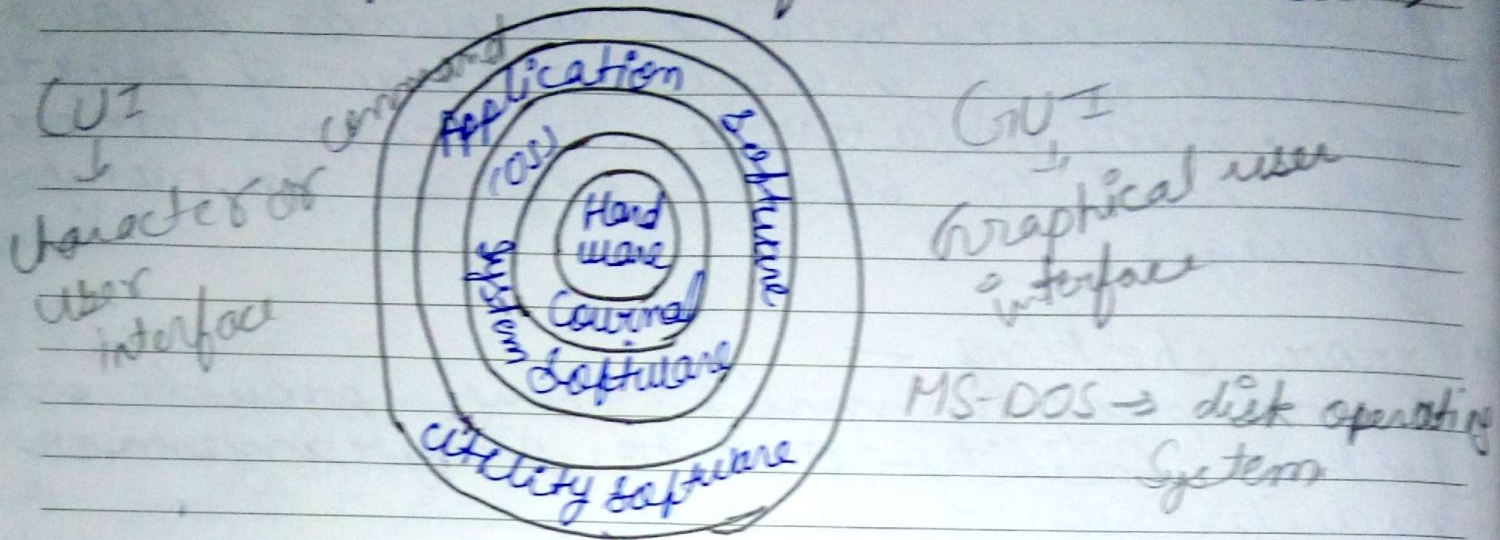 CUI
↓
Character or command
user
interface
Application Software
(OS)
System Software
Hard
ware
Courinal
Utility Software
GUI
↓
Graphical user
interface
MS-DOS → disk operating
System